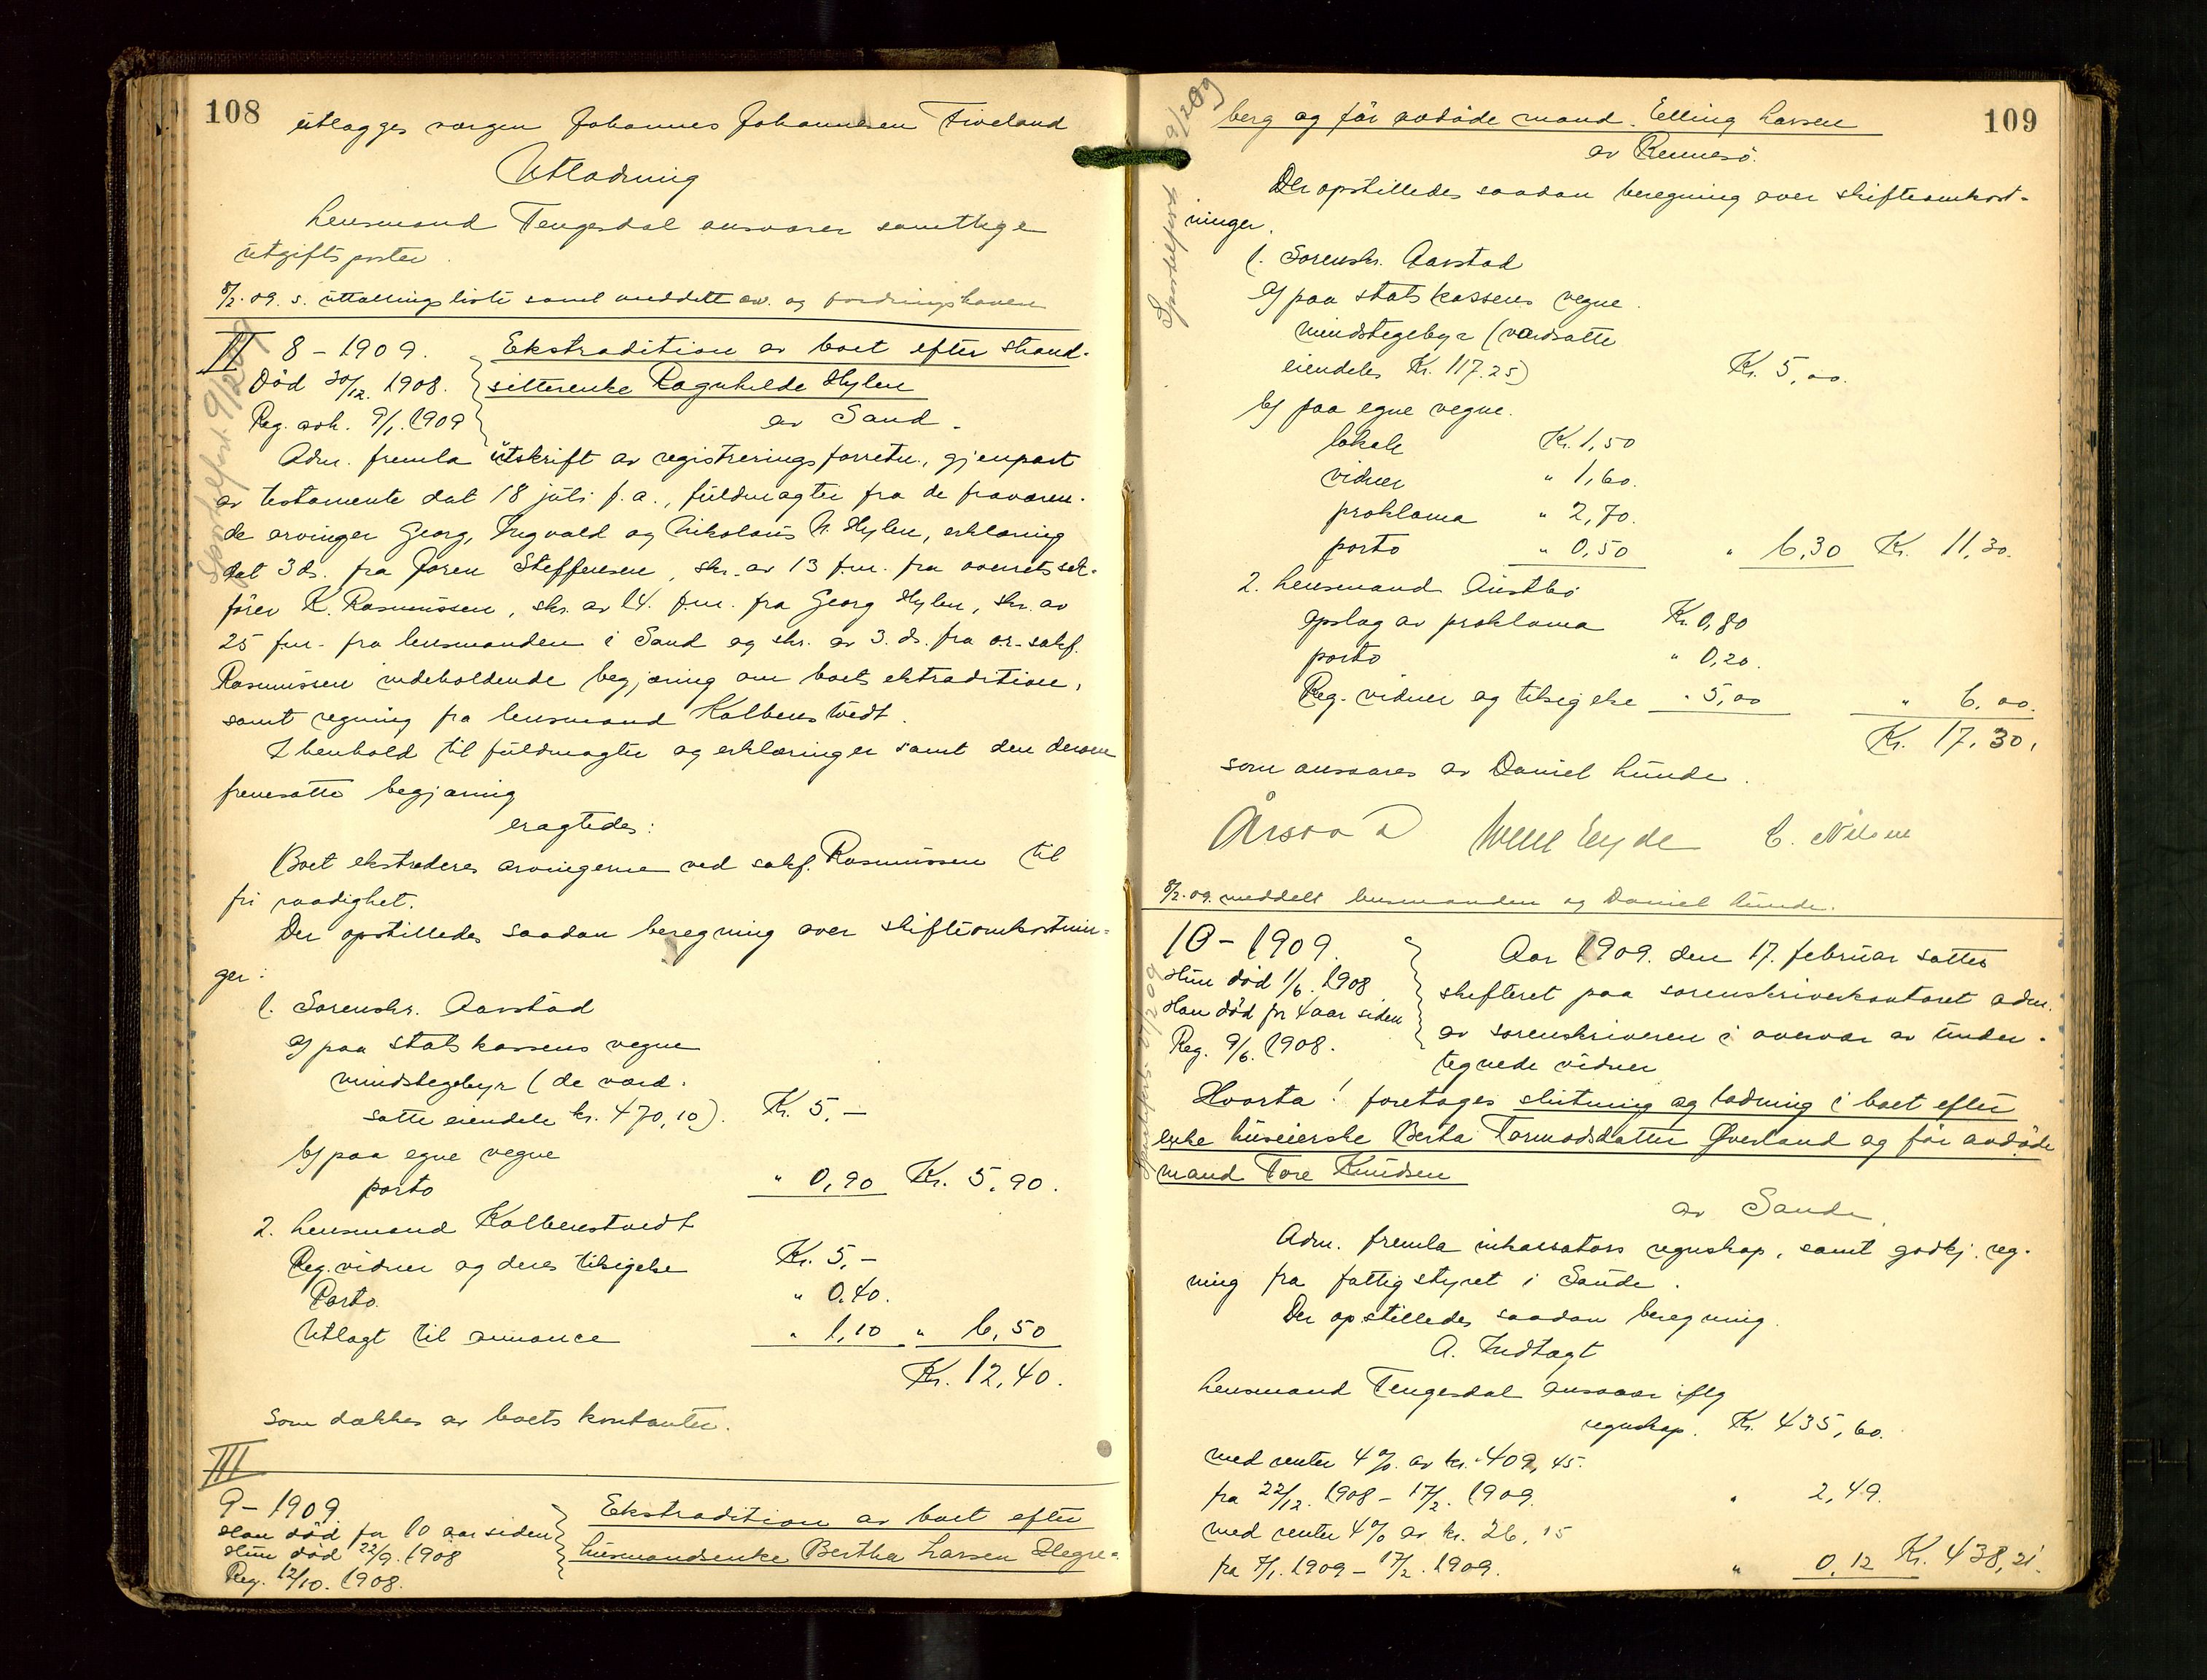 108
utlægges værgen Johannes Johannesen Fiveland
Utlodning
Lensmand Tengesdal ansvarer samtlige
utgiftsposter.
8/2.09. s. uttællingsliste samt meddelt arv. og fordringshavere
II 8 - 1909.
Død 30/12. 1908.
Reg. avh. 9/1. 1909
Ekstradition av boet efter strand-
sitterenke Ragnhilde Hylen
av Sand.
Sportelført 9/2 09
Adm. fremla utskrift av registreringsforretn., gjenpart
av testamente dat 18 juli f.a., fuldmagter fra de fraværen-
de arvinger Georg, Ingvald og Nikolaus N. Hylen, erklæring
dat 3 ds. fra Joren Steffensen, skr. av 13 f.m. fra overretssak-
fører K. Rasmussen, skr. av 14. f.m. fra Georg Hylen, skr. av
25 f.m. fra lensmanden i Sand og skr. av 3. ds. fra o.r.sakf.
Rasmussen indeholdende begjæring om boets ekstradition,
samt regning fra lensmand Kolbenstvedt.
I henhold til fuldmagter og erklæringer samt den derom
fremsatte begjæring
eragtedes:
Boet ekstraderes arvingerne ved sakf. Rasmussen til
fri raadighet.
Der opstilledes saadan beregning over skifteomkostnin-
ger:
1. Sorenskr. Aarstad
a) paa statskassens vegne
mindstegebyr (de værd-
satte eiendele kr. 470,10). Kr. 5,-
b) paa egne vegne
porto " 0,90 Kr. 5,90.
2. Lensmand Kolbenstvedt
Reg. vidner og deres tilsigelse Kr. 5,-
Porto. " 0,40.
Utlagt til annonce " 1,10 " 6,50
Kr. 12,40.
som dækkes av boets kontanter.
III
9 - 1909
Han død for 10 aar siden
Hun død 22/9. 1908
Reg. 12/10. 1908.
Ekstradition av boet efter
husmandsenke Bertha Larsen Hegre-
109
berg og før avdøde mand Elling Larsen
av Rennesø.
Sportelført 9/2 09
Der opstilledes saadan beregning over skifteomkost-
ninger.
1. Sorenskr. Aarstad
a) paa statskassens vegne.
mindstegebyr (værdsatte
eiendele Kr. 117.25) Kr. 5,00.
b) paa egne vegne.
lokale Kr. 1,50
vidner " 1,60.
proklama " 2,70.
porto " 0,50 " 6,30 Kr. 11,30.
2. Lensmand Austbø
opslag av proklama Kr. 0,80
porto " 0,20.
Reg. vidner og tilsigelse " 5,00 " 6,00.
Kr. 17,30.
som ansvares av Daniel Lunde.
C. Nilsen
8/2.09. meddelt lensmanden og Daniel Lunde.
10 - 1909.
Hun død 1/6. 1908
Han død for 4 aar siden
Reg. 9/6. 1908.
Aar 1909. den 17. februar sattes
skifteret paa sorenskriverkontoret adm.
av sorenskriveren i overvær av under-
tegnede vidner
Hvorda! foretages slutning og lodning i boet efter
enke huseierske Berta Tormodsdatter Øverland og før avdøde
mand Tore Knudsen
av Sande.
Adm. fremla inkassators regnskap, samt godkj. reg-
ning fra fattigstyret i Saude.
Der opstilledes saadan beregning.
A. Indtægt
Lensmand Tengesdal ansvar iflg
regnskap. Kr. 435,60.
med renter 4% av kr. 409,45.
fra 22/12. 1908 - 17/2. 1909. " 2,49.
med renter 4% av kr. 26,15
fra 7/1. 1909 - 17/2. 1909. " 0,12 Kr. 438,21.